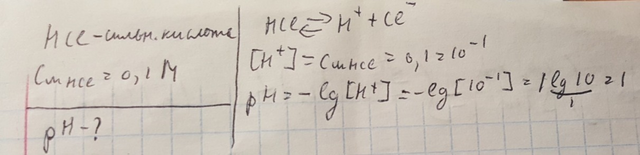 HCl - сильн. кислота
Cм HCl = 0,1 M
pH - ?
HCl ⇄ H⁺ + Cl⁻
[H⁺] = Cм HCl = 0,1 = 10⁻¹
pH = -lg [H⁺] = -lg [10⁻¹] = 1 lg 10 = 1
1